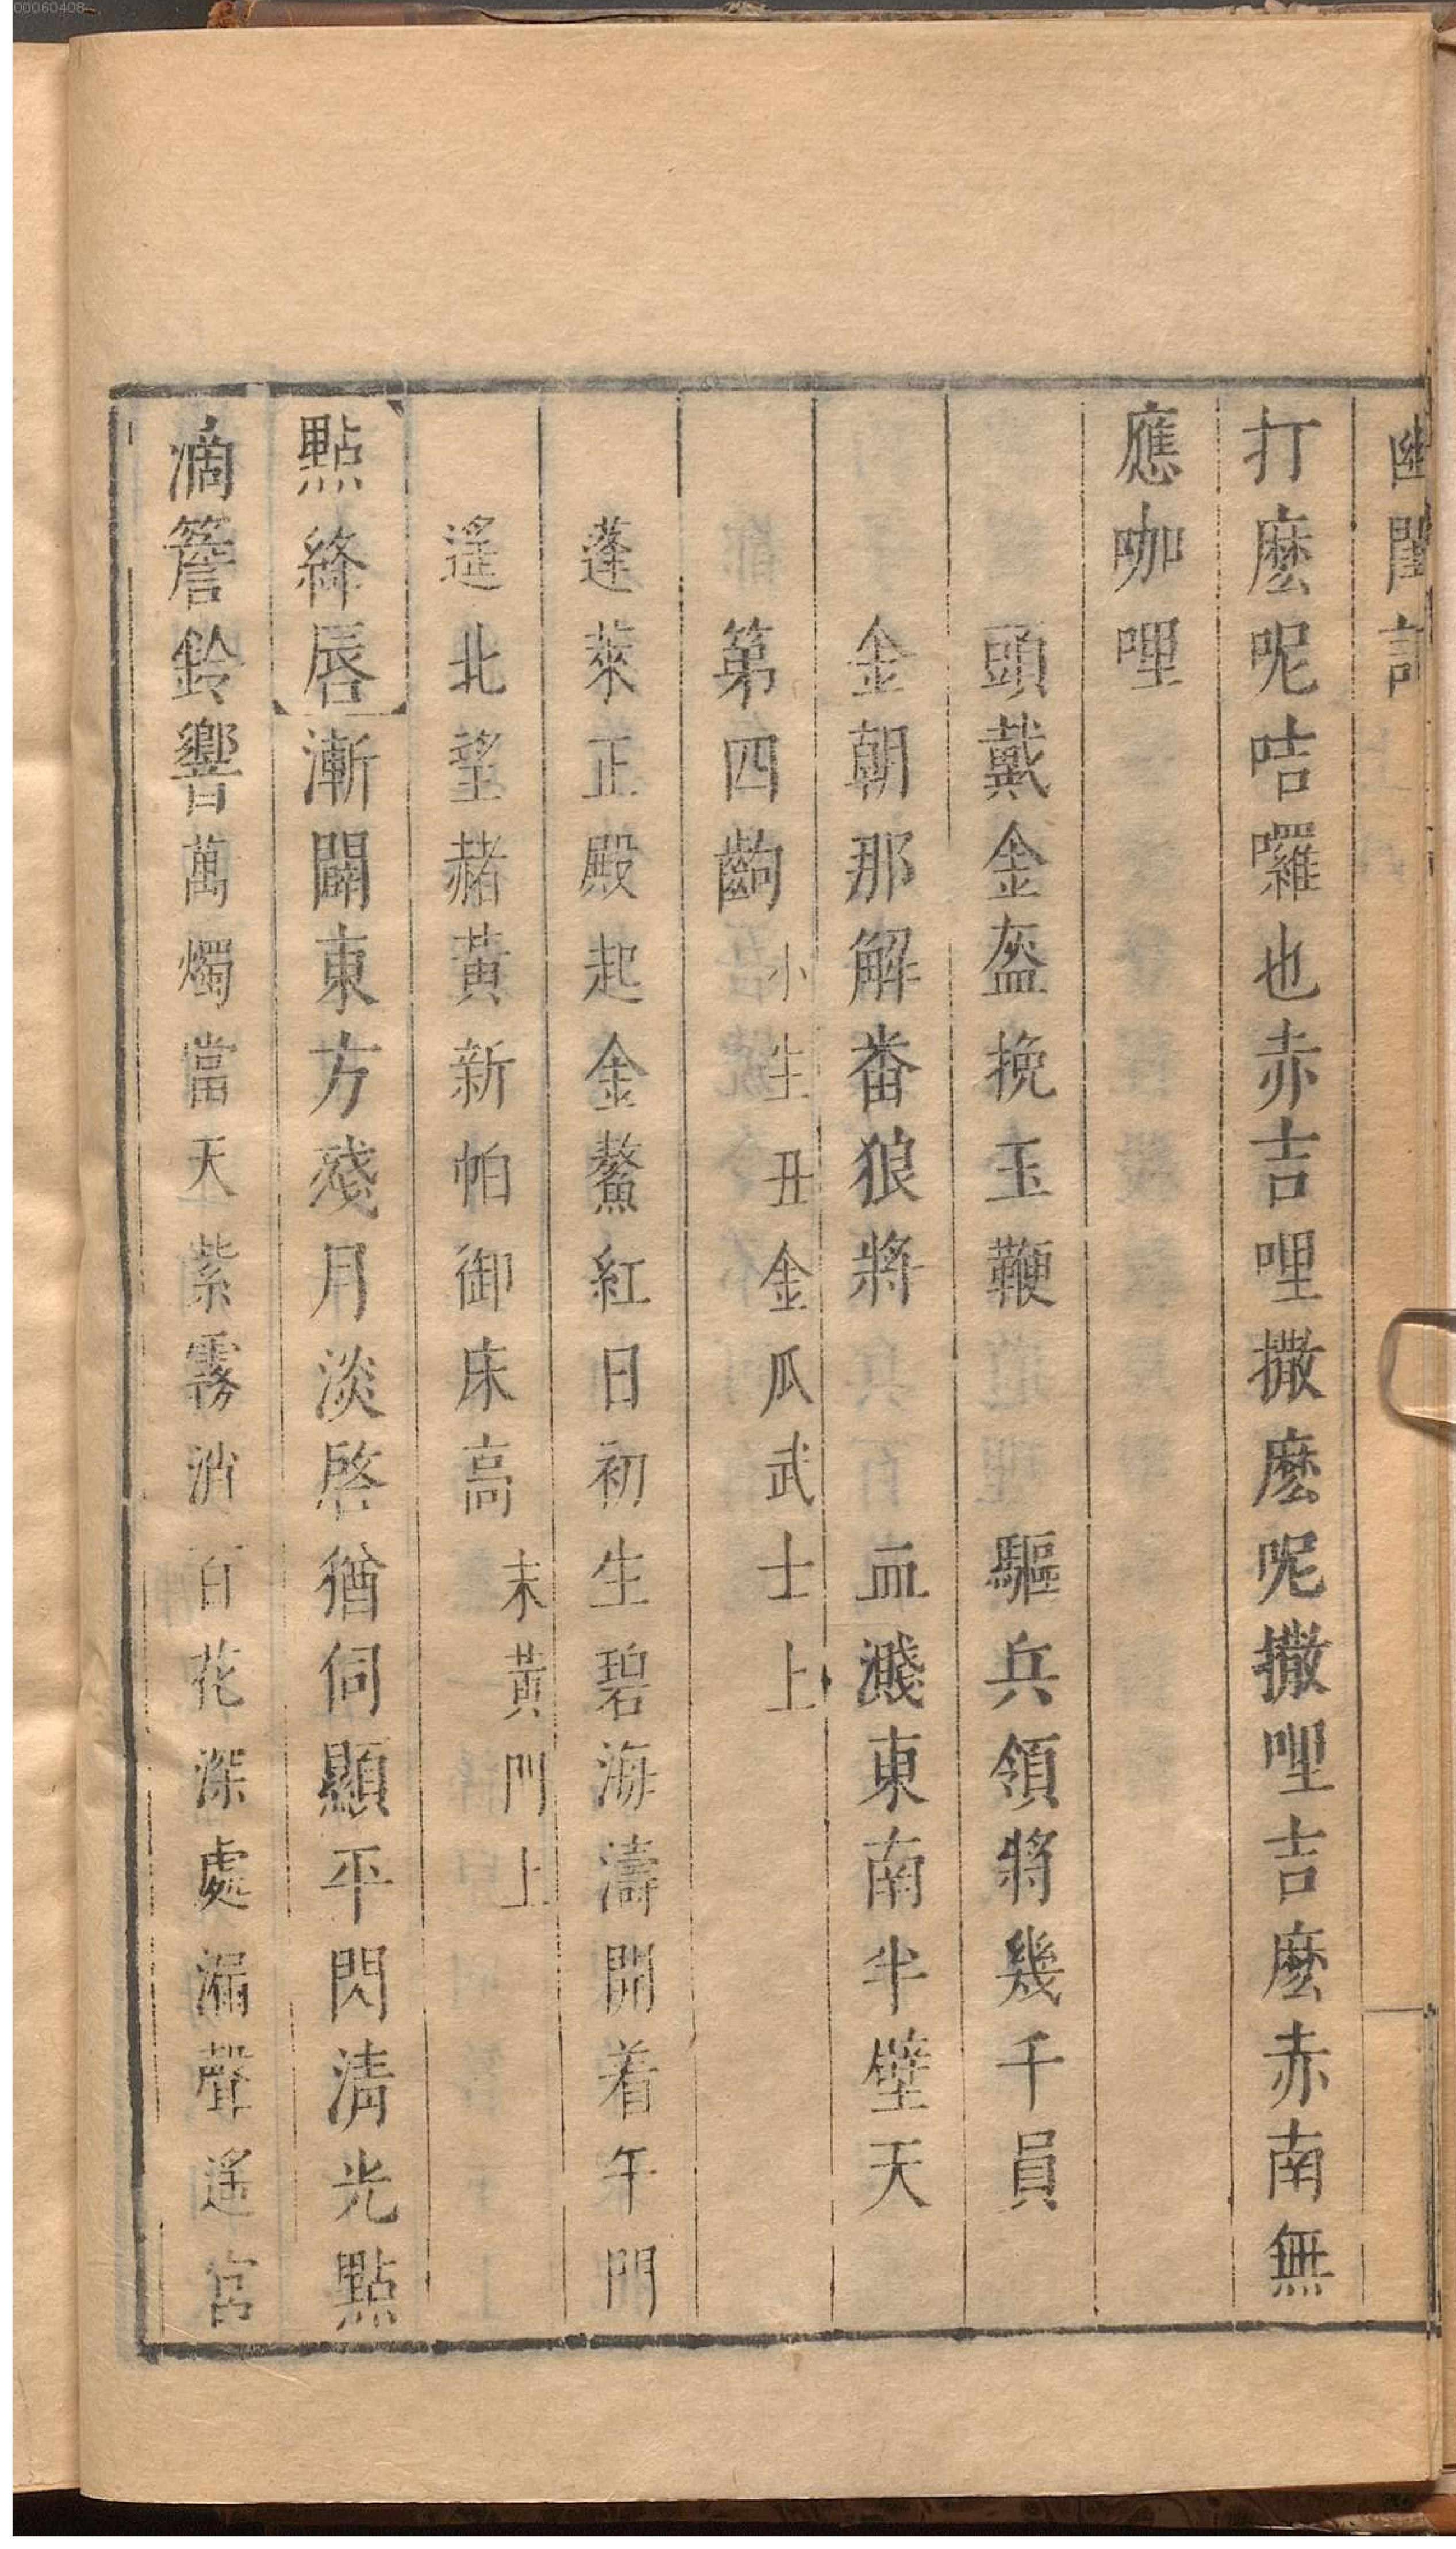 幽閨記
打麼呢咭囉也赤吉哩撒麼呢撒哩吉麼赤南無
應咖哩
頭戴金盔挽玉鞭 驅兵領將幾千員
金朝那解番狼將 血濺東南半壁天
第四齣 小生丑金瓜武士上
蓬萊正殿起金鰲紅日初生碧海濤開着午門
遙北望赭黃新帕御床高 末黃門上
點絳唇 漸闢東方殘月淡啓猶伺顯平閃清光點
滴簷鈴響萬燭當天紫霧消百花深處漏聲遙宮
00060408